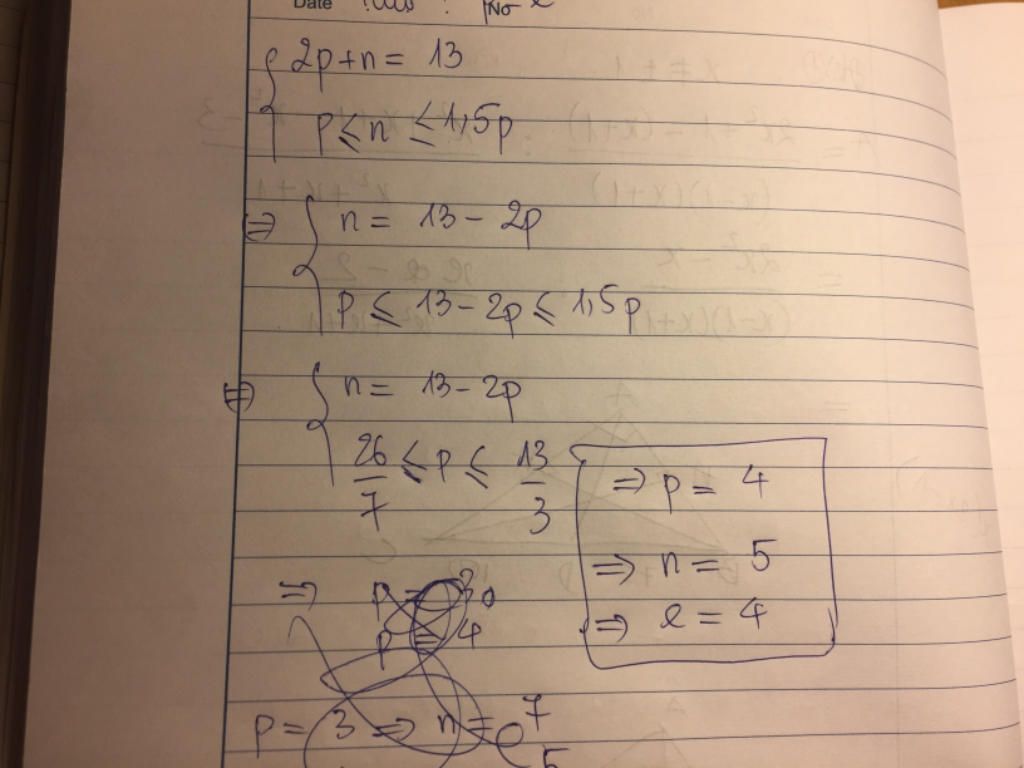 Date No
2p+n = 13
p ≤ n ≤ 1,5p
⇒ n = 13 - 2p
p ≤ 13 - 2p ≤ 1,5p
⇔ n = 13 - 2p
26/7 ≤ p ≤ 13/3
⇒ p = 4
⇒ n = 5
⇒ e = 4
⇒ p = 3
p = 4
p = 3 ⇒ n = 7
5